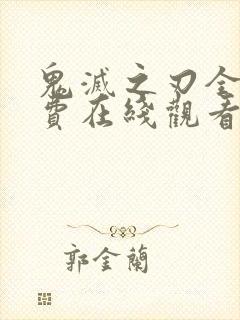 鬼滅之刃全
費在綫觀看
郭金蘭